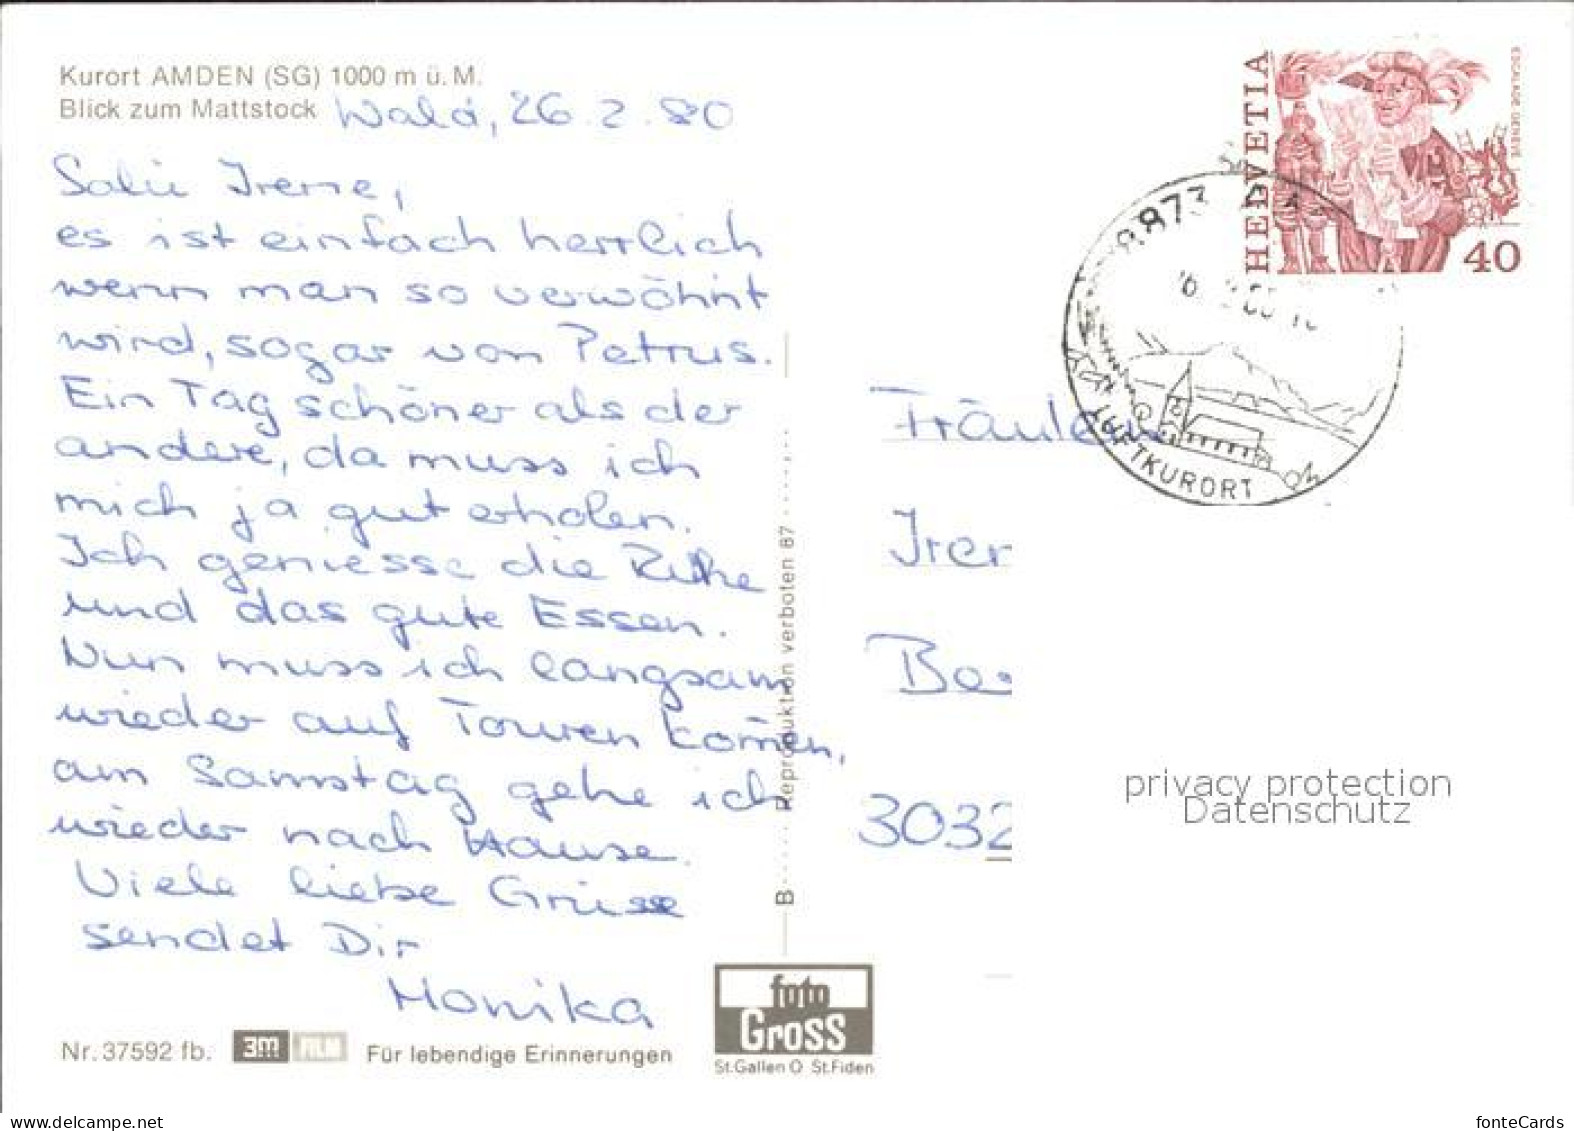 Kurort AMDEN (SG) 1000 m ü. M.
Blick zum Mattstock
Wald, 26.2.80
Salü Irene,
es ist einfach herrlich
wenn man so verwöhnt
wird, sogar von Petrus.
Ein Tag schöner als der
andere, da muss ich
mich ja gut erholen.
Ich geniesse die Ruhe
und das gute Essen.
Nun muss ich langsam
wieder auf Touren kom̄en,
am Samstag gehe ich
wieder nach Hause.
Viele liebe Grüsse
sendet Dir
Monika
Nr. 37592 fb.
3M FILM
Für lebendige Erinnerungen
B ..... Reproduktion verboten 87 ..... , ..
foto
Gross
St.Gallen O St.Fiden
HELVETIA
ESCALADE · GENÈVE
40
8873
LUFTKURORT
Fräulein
Iren
Be
3032
privacy protection
Datenschutz
www.delcampe.net
fonteCards